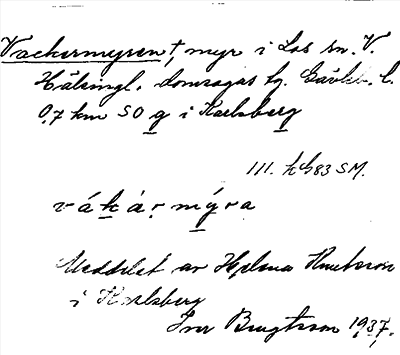 Vackermyren †, myr i Los sn. V.
Hälsingl. domsagas tg. Gävleb. l.
0,7 km SO g i Karlsberg
111. h 83 SM.
vákármýra
Meddelat av Helena Knutsson
i Karlsberg
Ivar Bengtsson 1937.